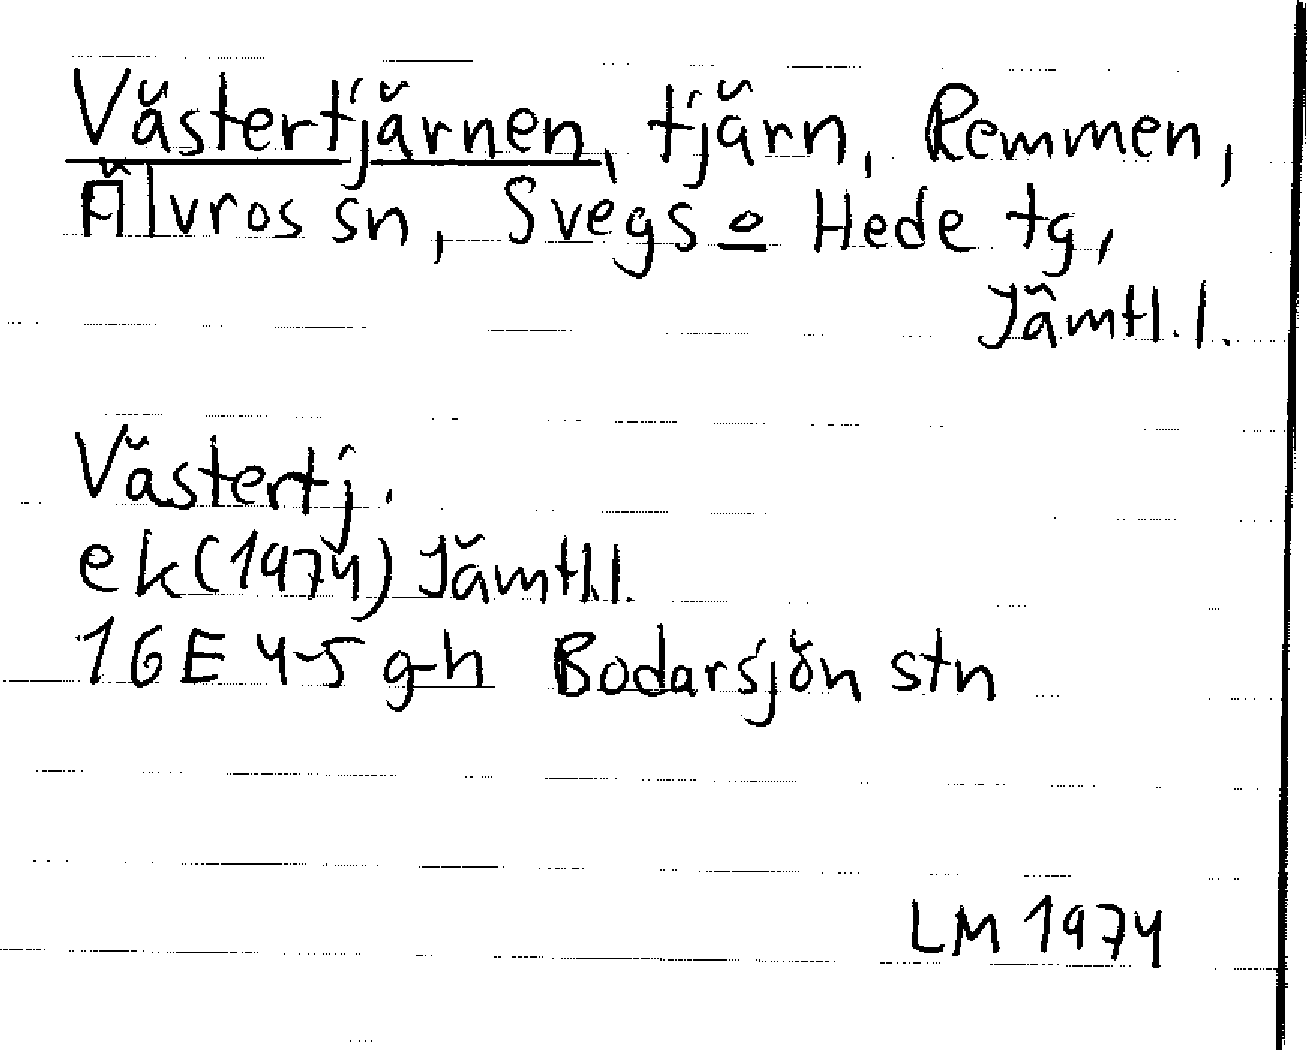 Västertjärnen, tjärn, Remmen,
Älvros sn, Svegs o Hede tg,
Jämtl. l.
Västertj.
ek (1974) Jämtl. l.
16E 4-5 g-h Bodarsjön stn
LM 1974